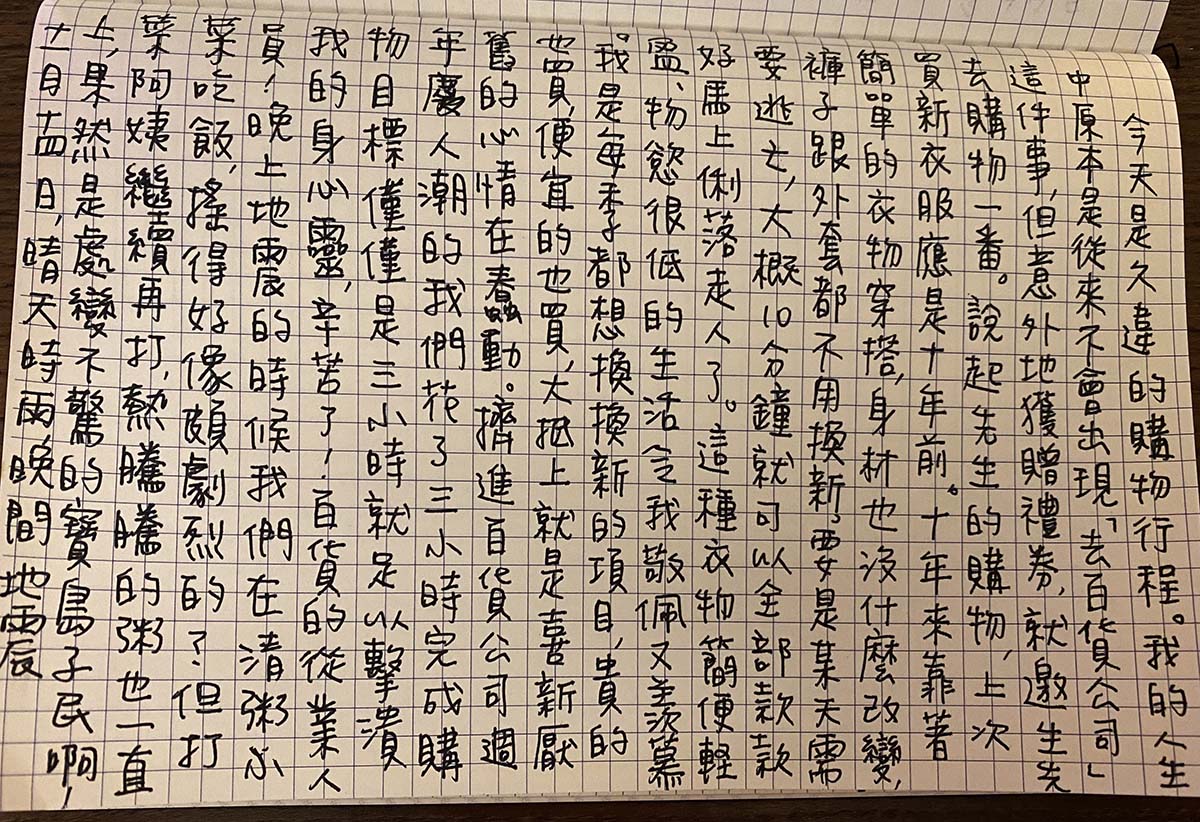 今天是久違的購物行程。我的人生
中原本是從來不會出現「去百貨公司」
這件事，但意外地獲贈禮券，就邀生先
去購物一番。說起先生的購物，上次
買新衣服應是十年前。十年來靠著
簡單的衣物穿搭，身材也沒什麼改變，
褲子跟外套都不用換新，要是某天需
要逃亡，大概10分鐘就可以全部款款
好馬上俐落走人了。這種衣物簡便輕
盈、物慾很低的生活令我敬佩又羨慕
。我是每季都想換換新的項目，貴的
也買，便宜的也買，大抵上就是喜新厭
舊的心情在蠢動。擠進百貨公司週
年慶人潮的我們花了三小時完成購
物目標，僅僅是三小時就足以擊潰
我的身心靈，辛苦了！百貨的從業人
員！晚上地震的時候我們在清粥小
菜吃飯，搖得好像頗劇烈的？但打
菜阿姨繼續再打，熱騰騰的粥也一直
上，果然是處變不驚的寶島子民啊，
十一月十五日，晴天時雨晚間地震